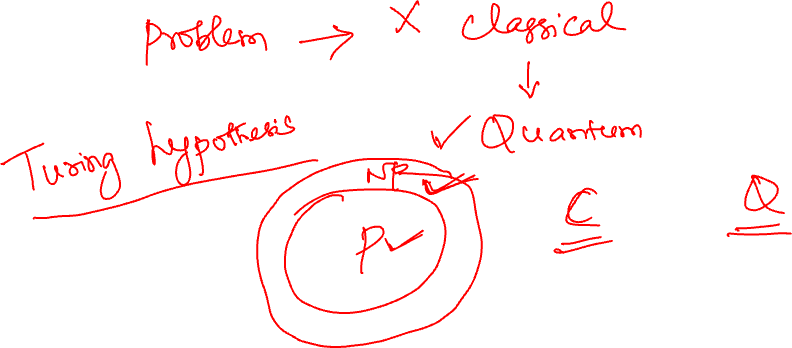 Problem → X Classical
↓
✓ Quantum
Turing hypothesis
NP ✓
P ✓
C Q